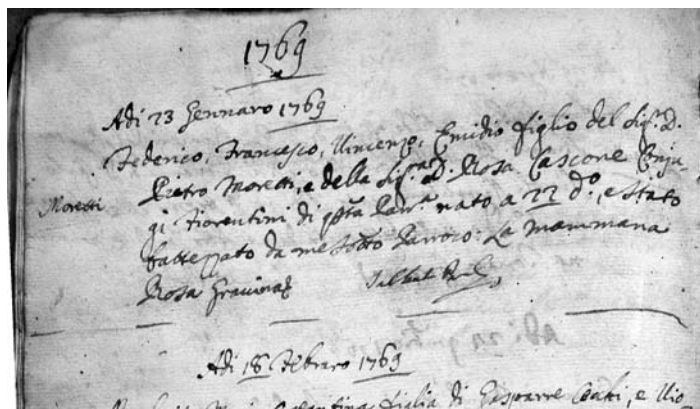 1769
Adi 23 Gennaro 1769
Federico, Francesco, Vincenzo, Emidio figlio del Sig.r D.
Pietro Moretti, e della Sig.ra D. Rosa Cascone Conju-
Moretti
gi Fiorentini di q.sta Parr.a nato a 22 d.o, e stato
battezzato da me sotto Parroco: La mammana
Rosa Gravina
Adi 18 Febraro 1769
figlia di Gasparre Conti, e